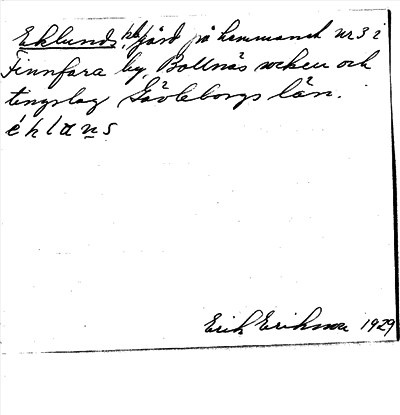 Eklunds, gård på hemmanet nr 3 i
Finnfara by, Bollnäs socken och
tingslag Gävleborgs län.
é k l a n s
Erik Eriksson 1929